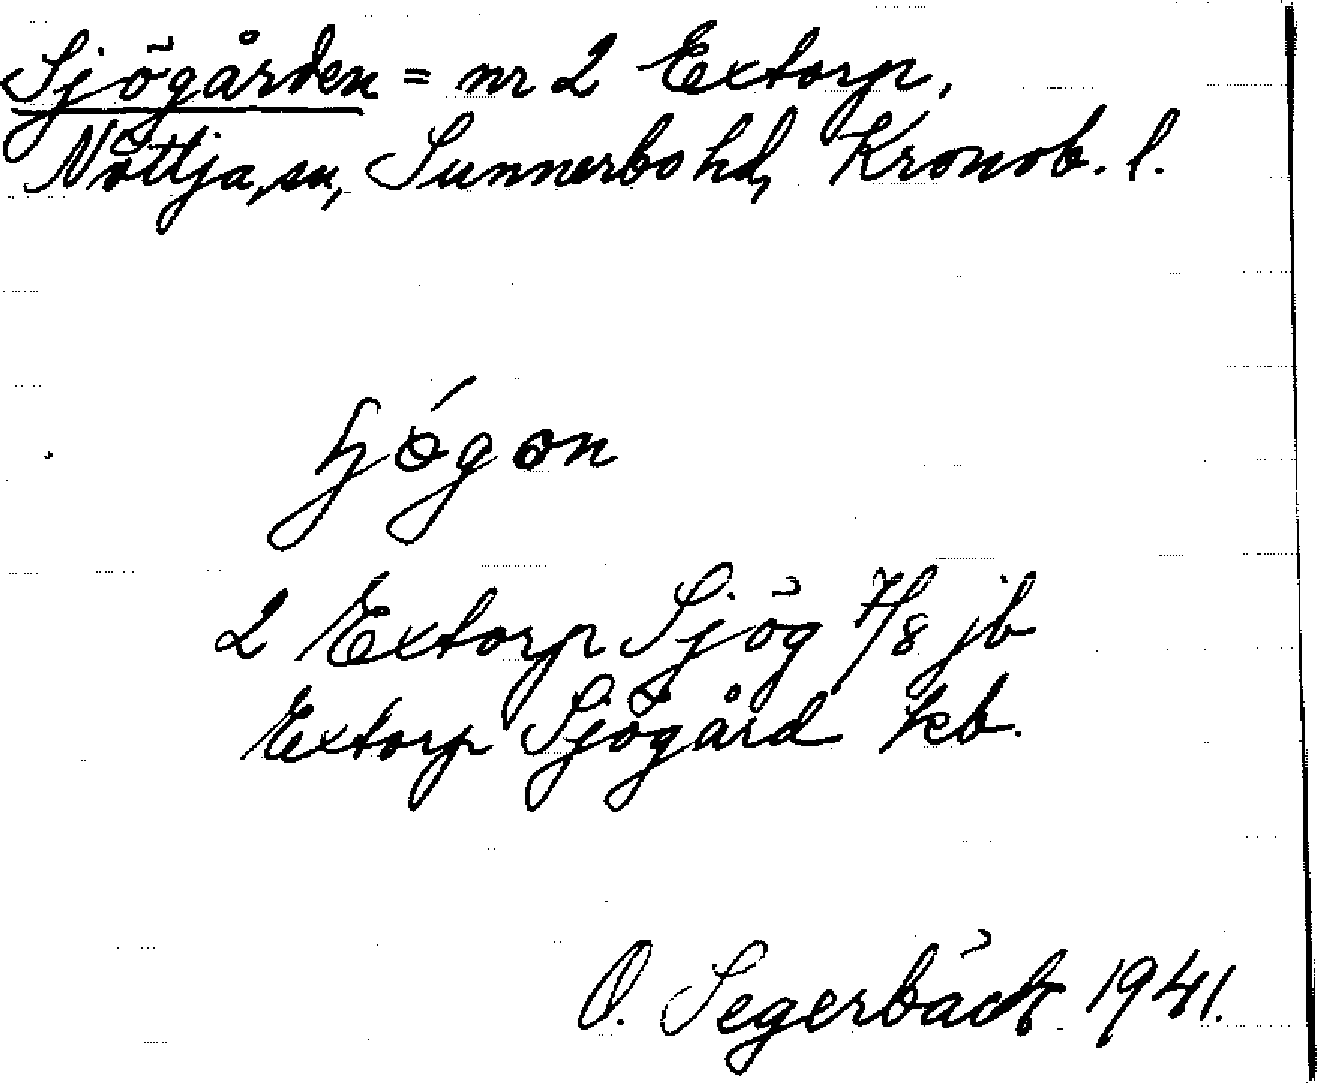 Sjögården = nr 2 Extorp,
Nöttja sn, Sunnerbo hd, Kronob. l.
2 Extorp Sjög 7/8 jb
Extorp Sjögård kb.
O. Segerbäck 1941.